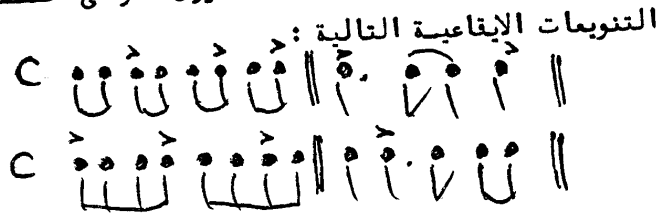 التنويعات الايقاعية التالية :
C
C